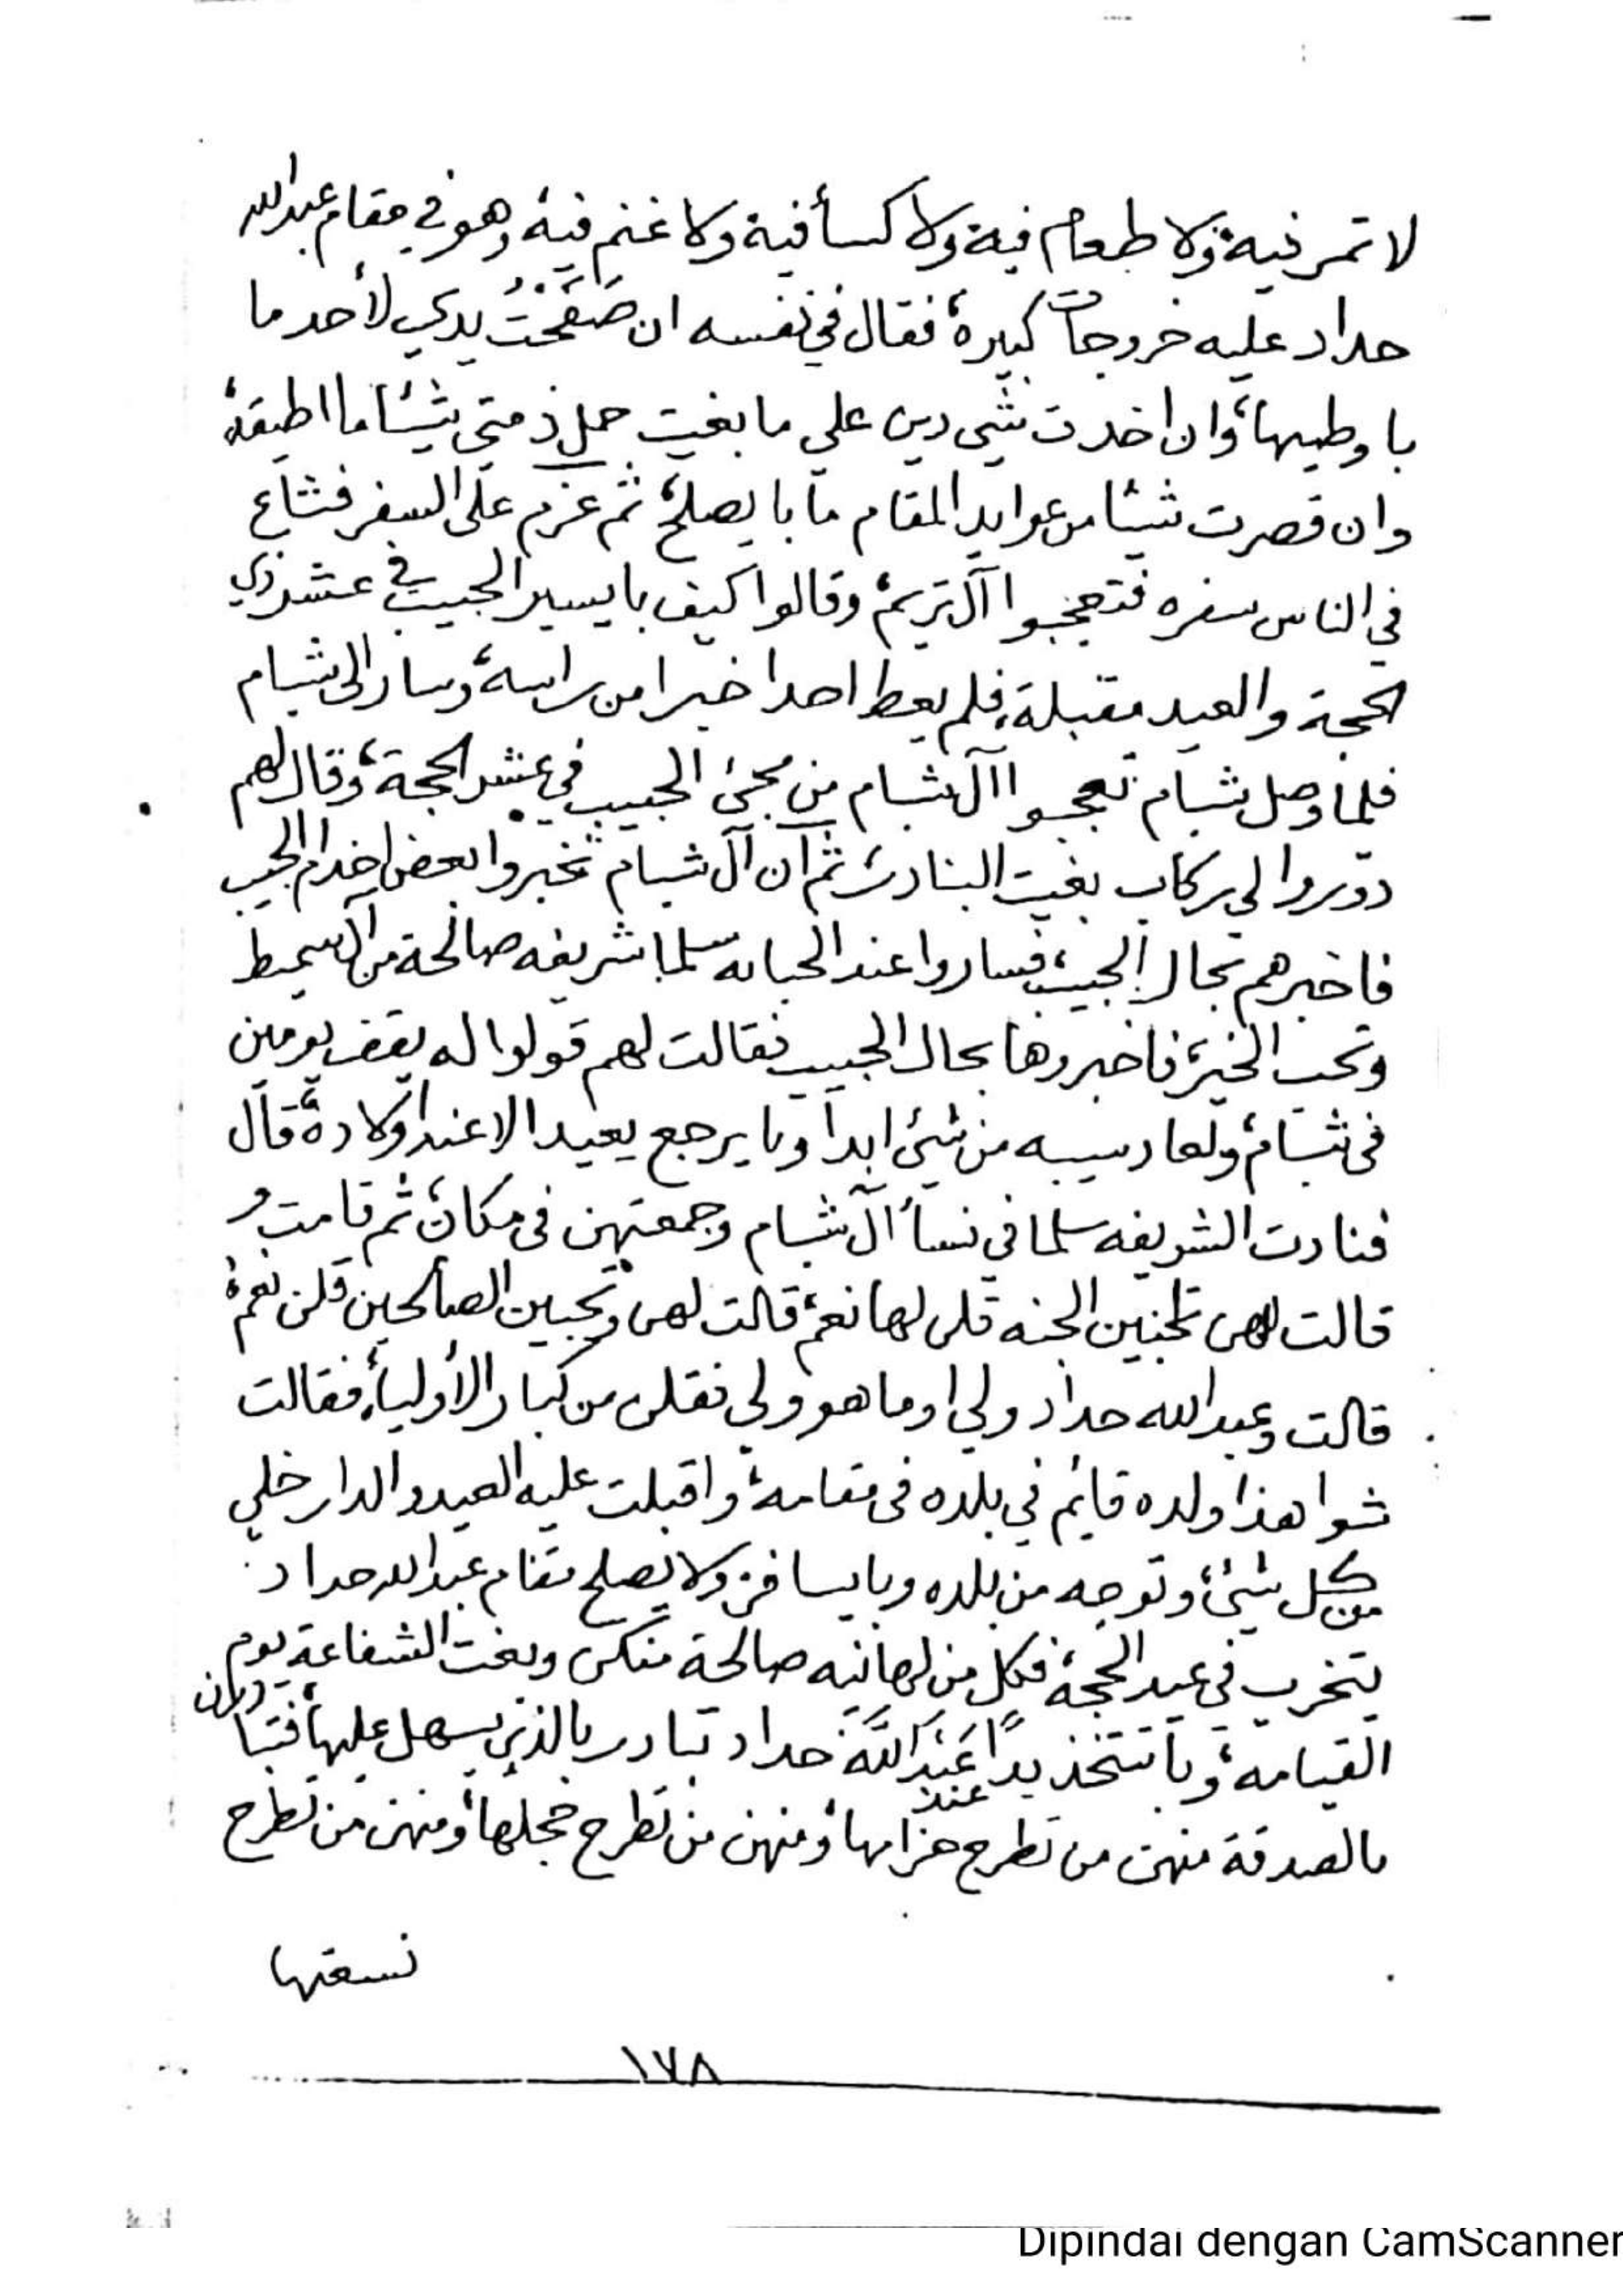 لا تمر فيه ولا طعام فيه ولا كسأ فيه ولا غنم فيه وهو في مقام عبدالله
حداد عليه خروجات كبيرة فقال في نفسه ان صَفَّحْتُ يدي لأحد ما
با وطيها، وان اخدت شي دين علي ما بغيت حمل ذمتي شيئا ما اطيقه
وان قصرت شيئا من عوايد المقام ما با يصلح ثم عزم على السفر فشاع
في الناس سفره فتعجبوا آل تريم وقالوا كيف با يسير الحبيب في عشر ذي
الحجة والعيد مقبلة، فلم يعط احدا خبرا من راسه، وسار الى شبام
فلما وصل شبام تعجبوا اآل شبام من مجئ الحبيب في عشر الحجة، وقال لهم
دوروا لي ركاب بغيت البنادر ثم ان آل شبام تخبروا بعض اخدام الحبيب
فاخبرهم بحال الحبيب، فساروا عند الحبابه سلما شريفه صالحة من آل سميط
وتحب الخير، فاخبروها بحال الحبيب فقالت لهم قولوا له يقف يومين
في شبام، ولعاد سيبه من شئ ابدا وبا يرجع يعيد الا عند اولاده، قال
فنادت الشريفه سلما في نسأ آل شبام وجمعتهن في مكان، ثم قامت و
قالت لهن تحبين الجنه قلن لها نعم، قالت لهن وتحبين الصالحين قلن نعم،
قالت وعبدالله حداد ولي او ما هو ولي فقلن من كبار الأوليأ، فقالت
شوا هذا ولده قايم في بلده في مقامه، واقبلت عليه العيد والدار خلي
من كل شئ، وتوجه من بلده وبا يسافر، ولا يصلح مقام عبدالله حداد
يتخرب في عيد الحجة، فكل من لها نيه صالحة منكن وبغت الشفاعة يوم
القيامه، وبا تتخذ يدًا عِنْدَ عَبْدِ اللَّهِ حداد تبادر بالذي يسهل عليها، فتبادرن
بالصدقة منهن من تطرح حزامها، ومنهن من تطرح حجلها، ومنهن من تطرح
نسعتها
١٧٨
Dipindai dengan CamScanner